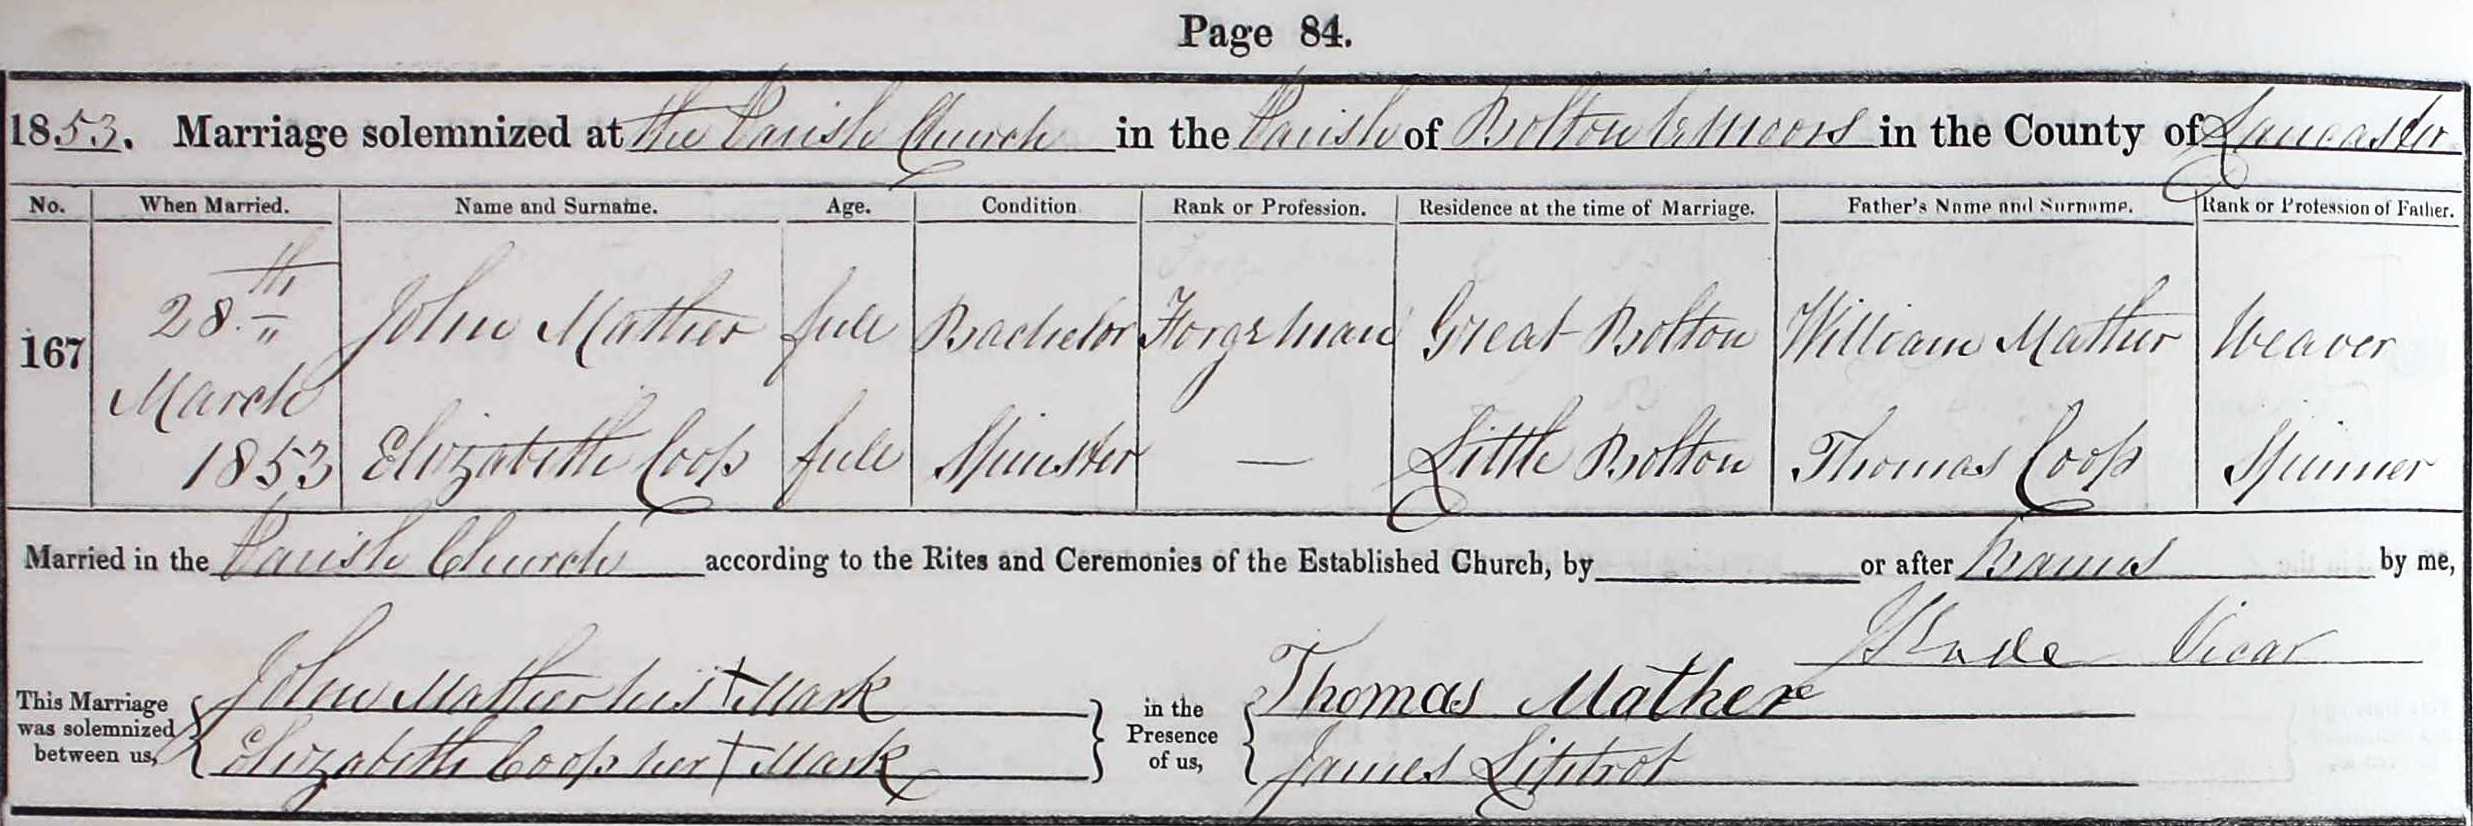 Page 84.
1853. Marriage solemnized at the Parish Church in the Parish of Bolton le Moors in the County of Lancaster
No. When Married. Name and Surname. Age. Condition Rank or Profession. Residence at the time of Marriage. Father's Name and Surname. Rank or Profession of Father.
167 28th March 1853 John Mather full Bachelor Forgeman Great Bolton William Mather Weaver
Elizabeth Coop full Spinster — Little Bolton Thomas Coop Spinner
Married in the Parish Church according to the Rites and Ceremonies of the Established Church, by or after Banns by me,
Slade Vicar
This Marriage was solemnized between us, John Mather his + Mark
Elizabeth Coop her + Mark
in the Presence of us, Thomas Mather
James Liptrot